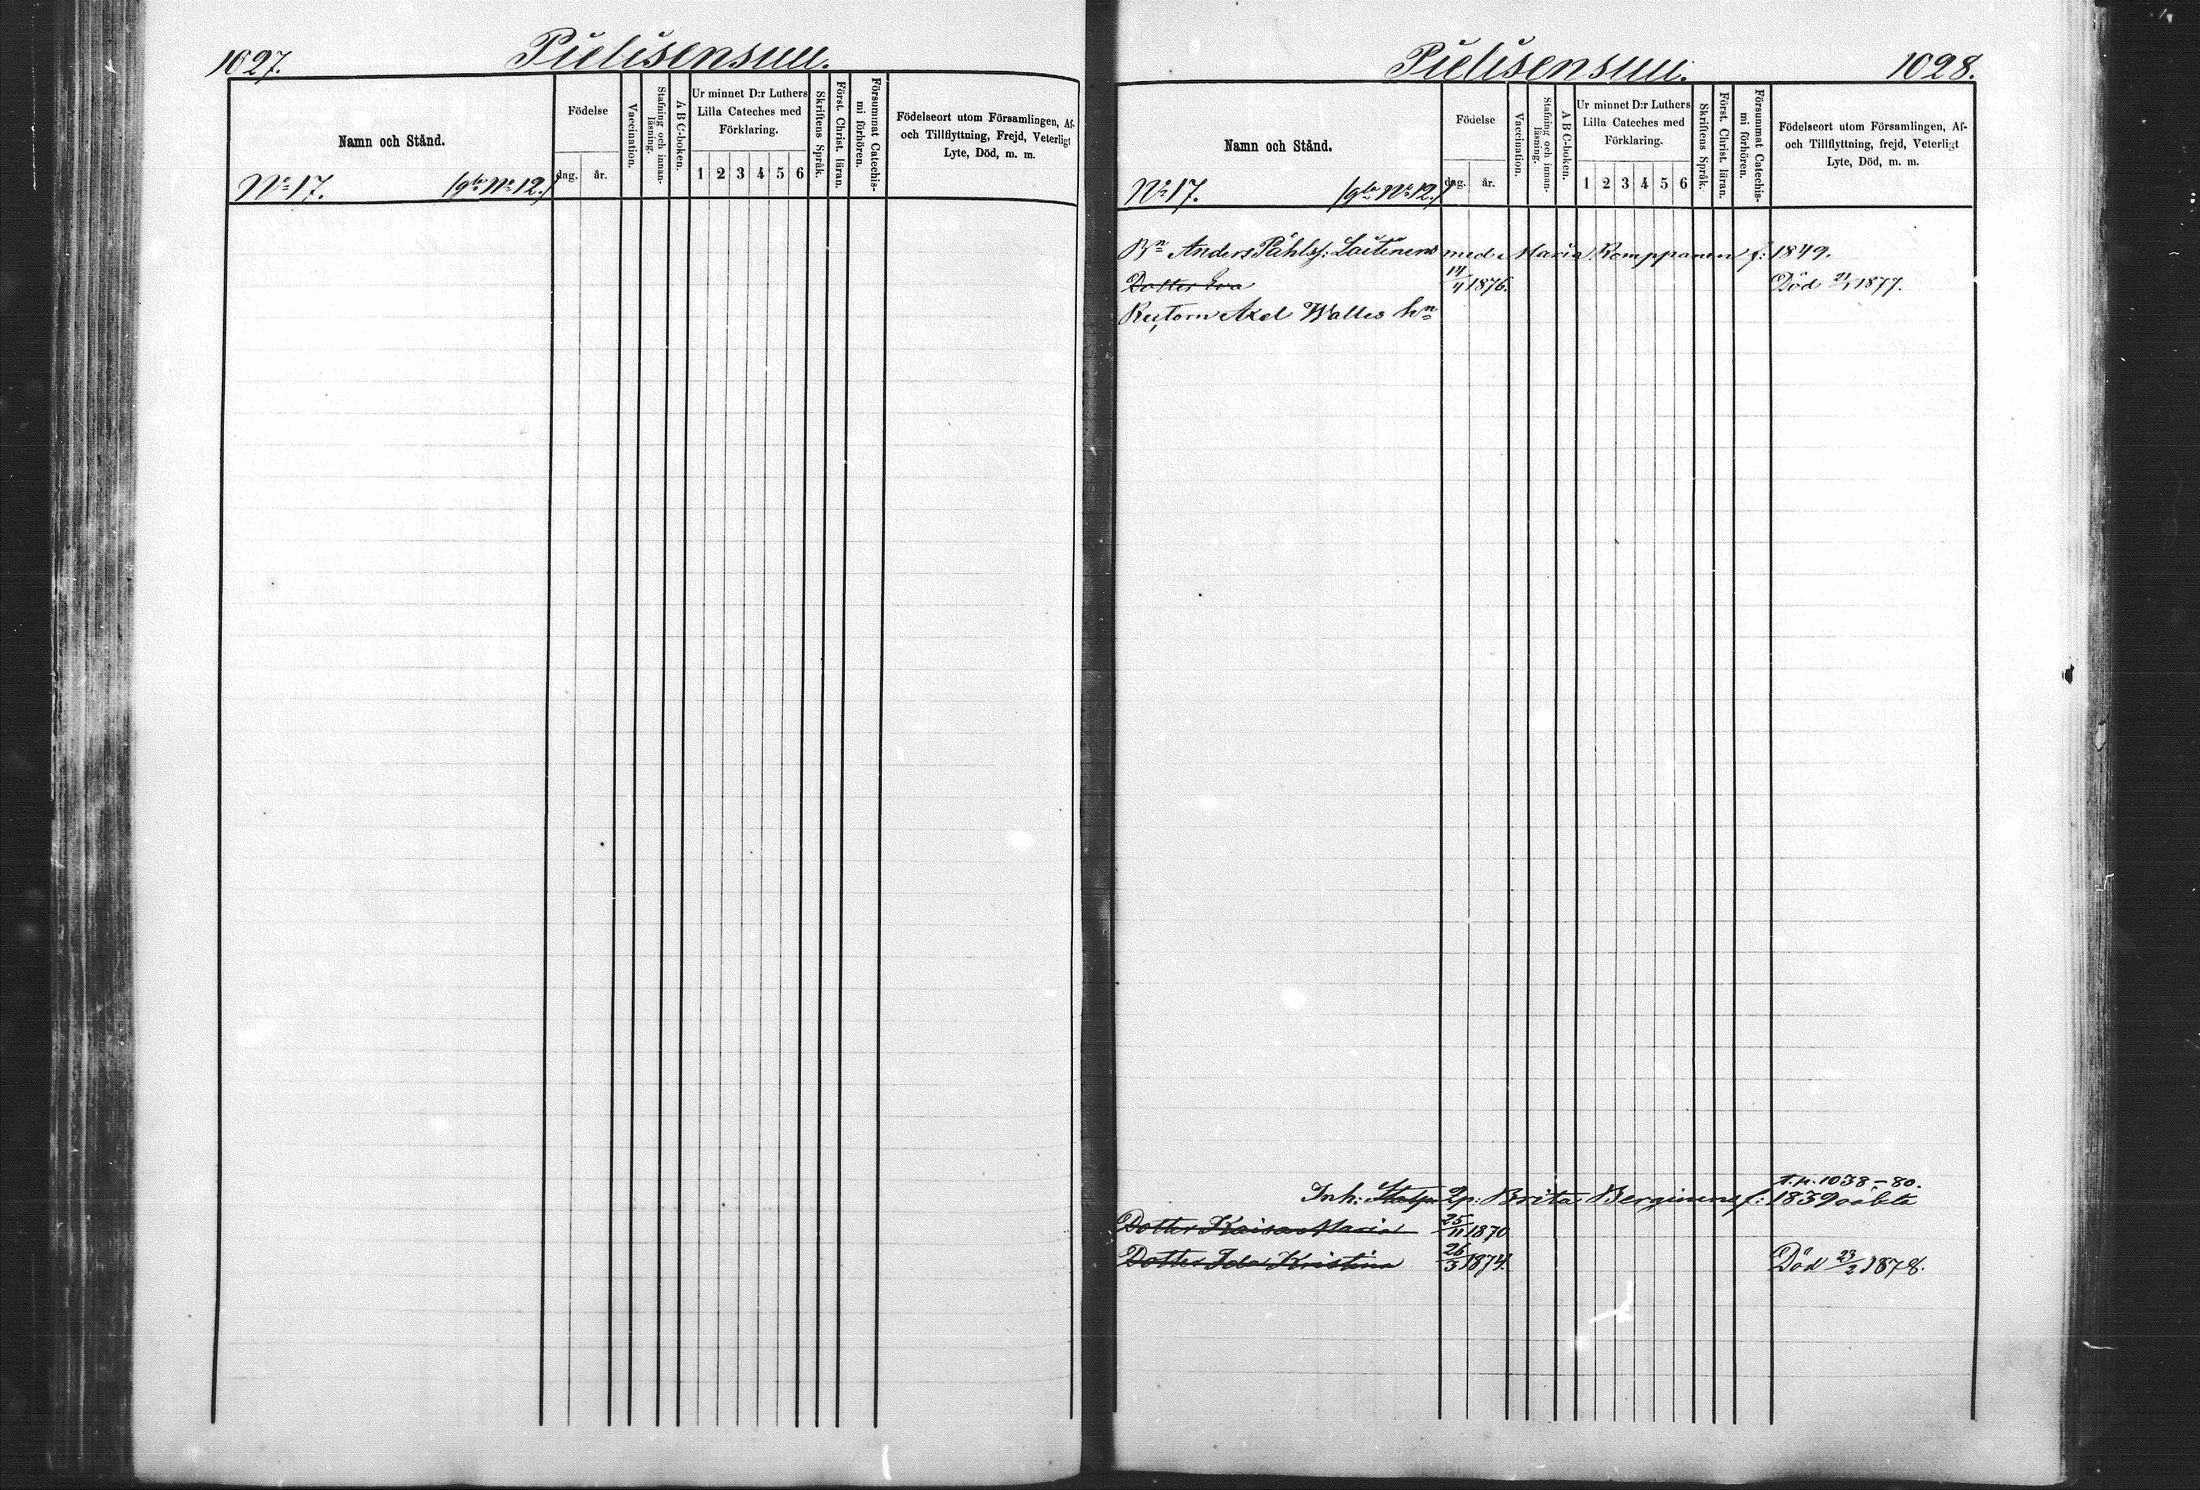 1627.
Pielisensuu.
Namn och Stånd.
Födelse
dag.
år.
Vaccination.
Stafning och innan-
läsning.
A B C-boken.
Ur minnet D:r Luthers
Lilla Cateches med
Förklaring.
1 2 3 4 5 6
Skriftens Språk.
Först. Christ. läran.
Försummat Catechis-
mi förhören.
Födelseort utom Församlingen, Af-
och Tillflyttning, Frejd, Veterligt
Lyte, Död, m. m.
N:o 17. (gla N:o 12.)
Pielisensuu.
1628.
Namn och Stånd.
Födelse
dag.
år.
Vaccination.
Stafning och innan-
läsning.
A B C-boken.
Ur minnet D:r Luthers
Lilla Cateches med
Förklaring.
1 2 3 4 5 6
Skriftens Språk.
Först. Christ. läran.
Försummat Catechis-
mi förhören.
Födelseort utom Församlingen, Af-
och Tillflyttning, frejd, Veterligt
Lyte, Död, m. m.
N:o 17. (gla N:o 12.)
Bn Anders Påhlsf: Laitinens med Maria Romppanen f: 1849.
Dotter Eva 14/4 1876. Död 21/1 1877.
Axel Walles hn
t.p. 1038-80.
Inh: Brita Berginens f: 1839
Dotter Kaisa Maria 25/11 1870
Dotter Ida Kristina 26/3 1874. Död 23/2 1878.